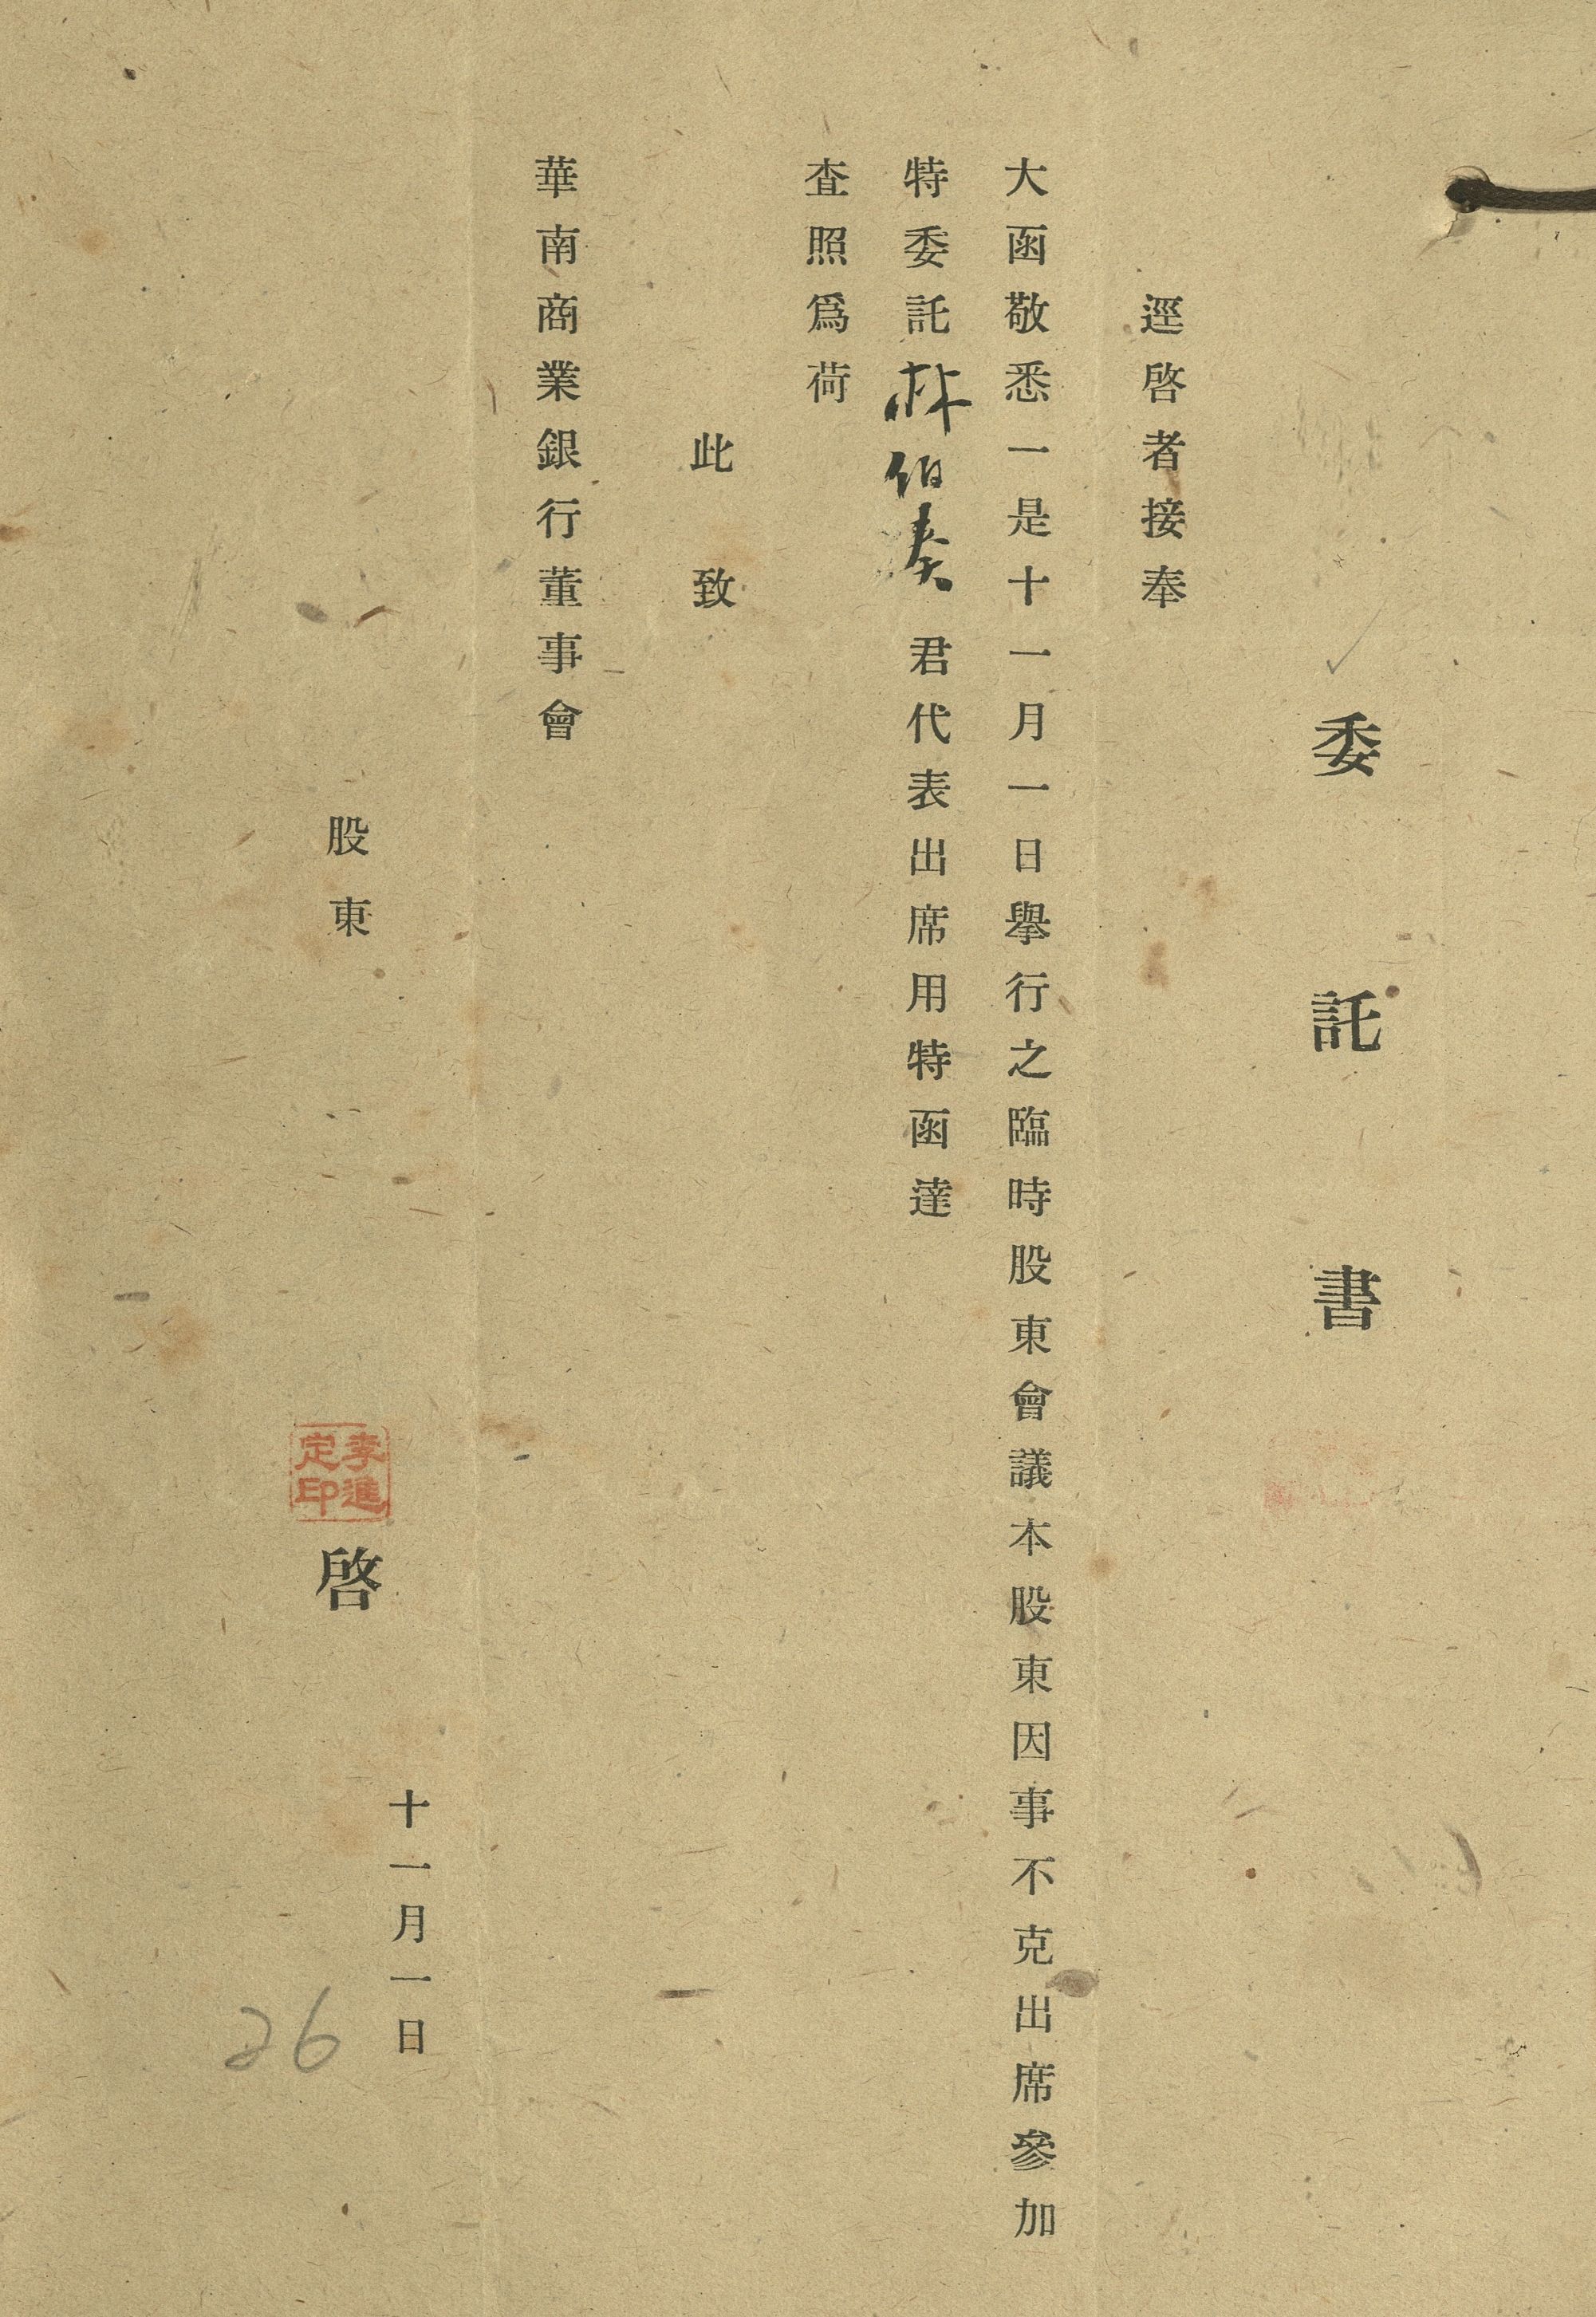 委託書
逕啓者接奉
大函敬悉一是十一月一日舉行之臨時股東會議本股東因事不克出席參加
特委託林伯奏君代表出席用特函達
査照爲荷
此致
華南商業銀行董事會
十一月一日
股東 李進定印 啓
26